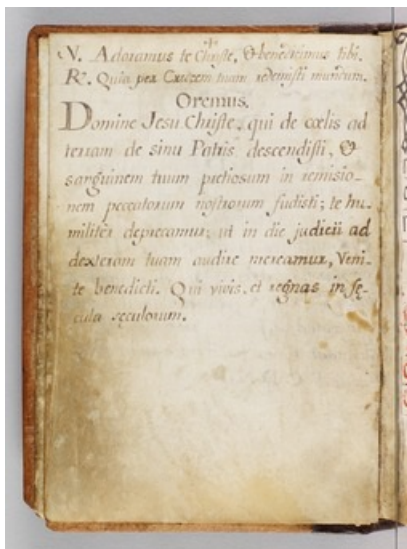 V. Adoramus te Christe, & benedicimus tibi.
R. Quia per Crucem tuam redemisti mundum.
Oremus.
Domine Jesu Christe, qui de cœlis ad
terram de sinu Patris descendisti, &
sanguinem tuum pretiosum in remisio-
nem peccatorum nostrorum fudisti; te hu-
militèr deprecamur, ut in die judicii ad
dexteram tuam audire mereamur, Veni-
te benedicti. Qui vivis, et regnas in sę-
cula sęculorum.